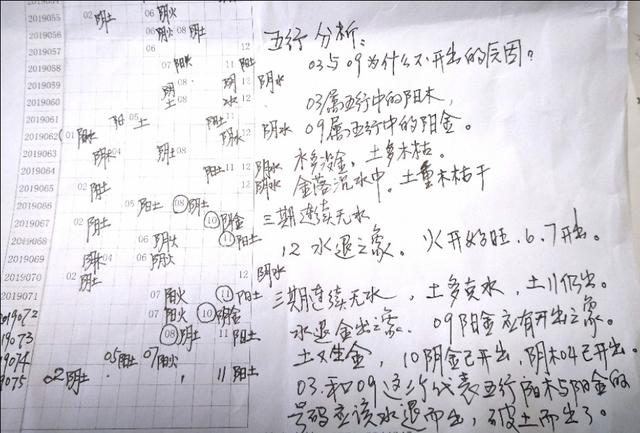 2019054 02 阴土 06 阴火
2019055 06 阴火 08 阴土
2019056 06 12
2019057 07 阳火 11 阳土
2019058 阴土 08 阴水 12 阴水
2019059
2019060 12
2019061 阳 05 土 阳土 11
2019062 01 阳水 阴水 12 阴水
2019063 阴木 04 阴土 08
2019064 阳土 11 12 阴水
2019065 02 阴土 12 阴水
05 阳土 08 阴土
2019067 02 阴土 10 阴金
2019068 06 阴火 11 阳土
2019069 阴木 04 06 阴火
2019070 02 阴土 12 阴水
2019071 07 阳火 11 阳土
2019072 07 阳火 10 阴金
2019073 08 阴土 11 阳土
19074 05 阳土 07 阳火
9075 02 阴土 11 阳土
五行分析:
03与09为什么不开出的原因?
03属五行中的阳木,
09属五行中的阳金。
水多没金,土多木枯。
金落沉水中。土重木枯干
三期连续无水
12水退之象。火开好旺.6.7开出。
三期连续无水,土多克水,土11仍出。
水退金出之象.09阳金应有开出之象。
土又生金,10阴金已开出,阴木04已开出。
03.和09这二个代表五行阳木与阳金的
号码应该水退而出,破土而出了。